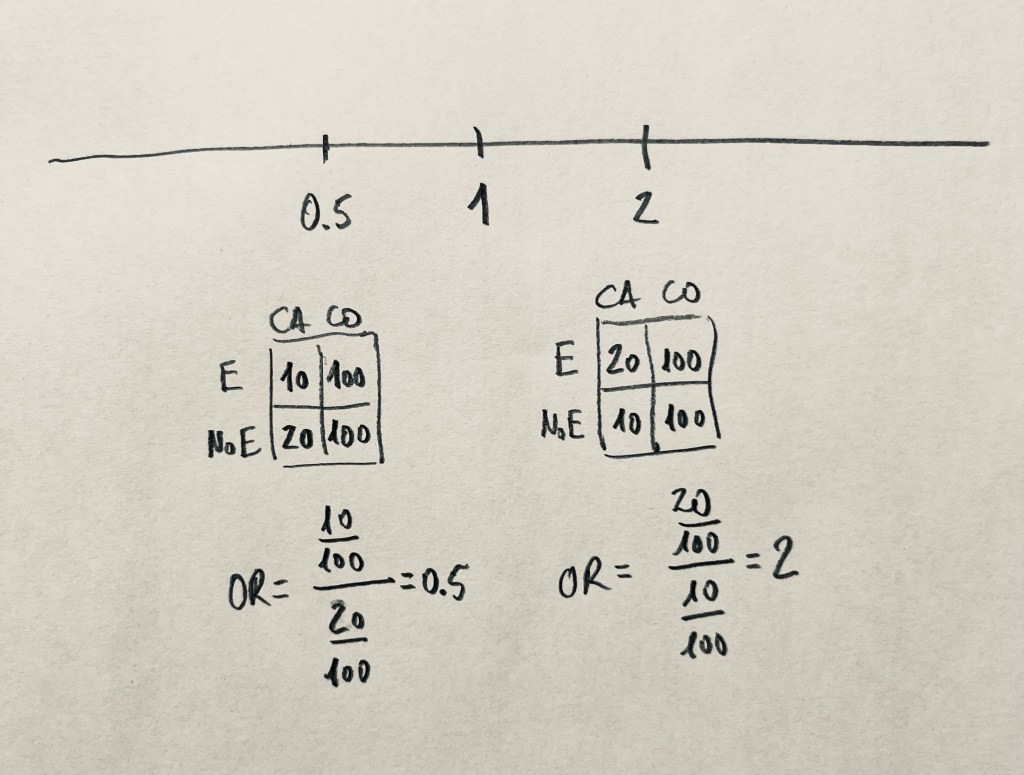 0.5 1 2
CA CO
E 10 100
No E 20 100
OR = 10/100 / 20/100 = 0.5
CA CO
E 20 100
No E 10 100
OR = 20/100 / 10/100 = 2